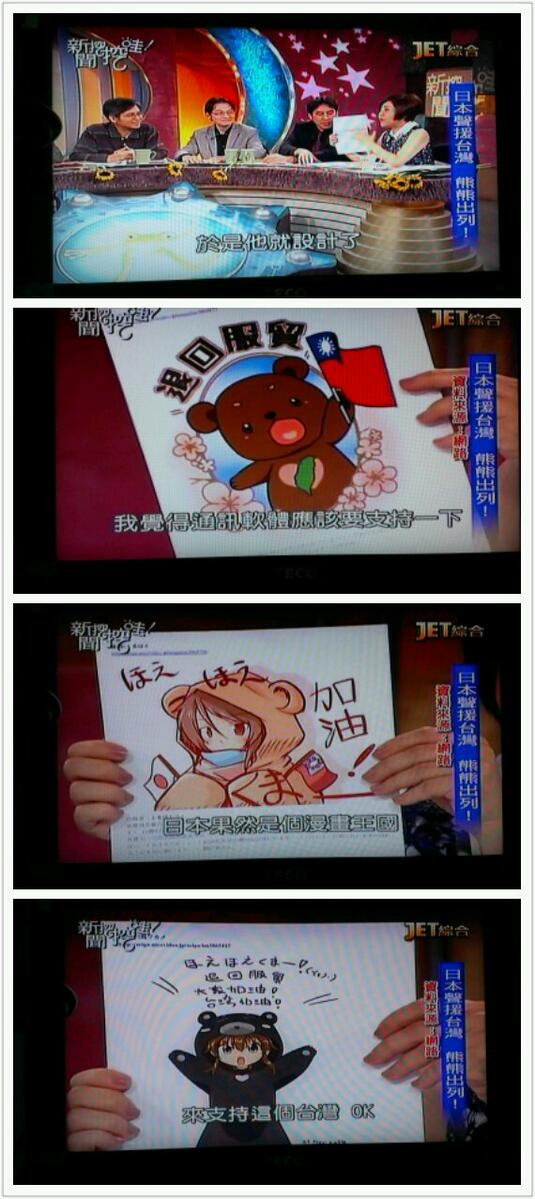 新聞挖挖哇!
JET綜合
日本聲援台灣 熊熊出列!
於是他就設計了
TECO
新聞挖挖哇!
JET綜合
退回服貿
日本聲援台灣 熊熊出列!
資料來源:網路
我覺得通訊軟體應該要支持一下
TECO
新聞挖挖哇!
JET綜合
ほえ ほえ
加油!
くま
日本聲援台灣 熊熊出列!
資料來源:網路
日本果然是個漫畫王國
新聞挖挖哇!
JET綜合
ほえほえくまー!
退回服貿
大家加油!
台湾加油!
日本聲援台灣 熊熊出列!
資料來源:網路
來支持這個台灣 OK